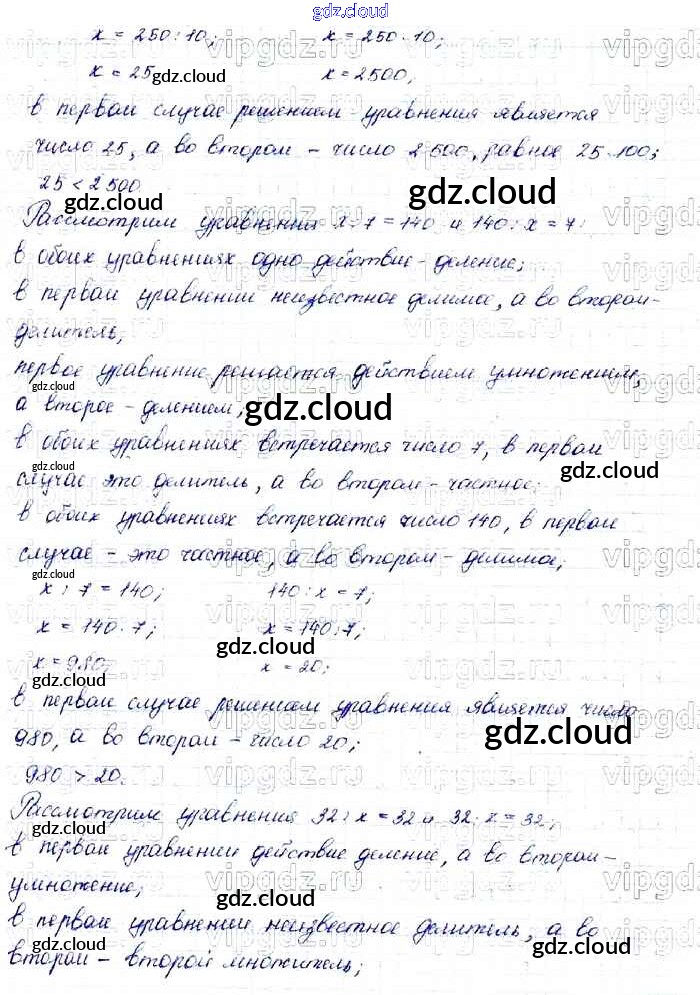 gdz.cloud
x = 250 : 10; x = 250 · 10;
x = 25 x = 2500,
в первом случае решением уравнения является
число 25, а во втором – число 2500, равное 25·100;
25 < 2500
Рассмотрим уравнения x : 7 = 140 и 140 : x = 7:
в обоих уравнениях одно действие – деление;
в первом уравнении неизвестное делимое, а во втором –
делитель;
первое уравнение решается действием умножением,
а второе – делением;
в обоих уравнениях встречается число 7, в первом
случае это делитель, а во втором – частное;
в обоих уравнениях встречается число 140, в первом
случае – это частное, а во втором – делимое;
x : 7 = 140; 140 : x = 7;
x = 140 · 7; x = 140 : 7;
x = 980; x = 20;
в первом случае решением уравнения является число
980, а во втором – число 20;
980 > 20.
Рассмотрим уравнения 32 : x = 32 и 32 · x = 32;
в первом уравнении действие деление, а во втором –
умножение;
в первом уравнении неизвестное делитель, а во
втором – второй множитель;